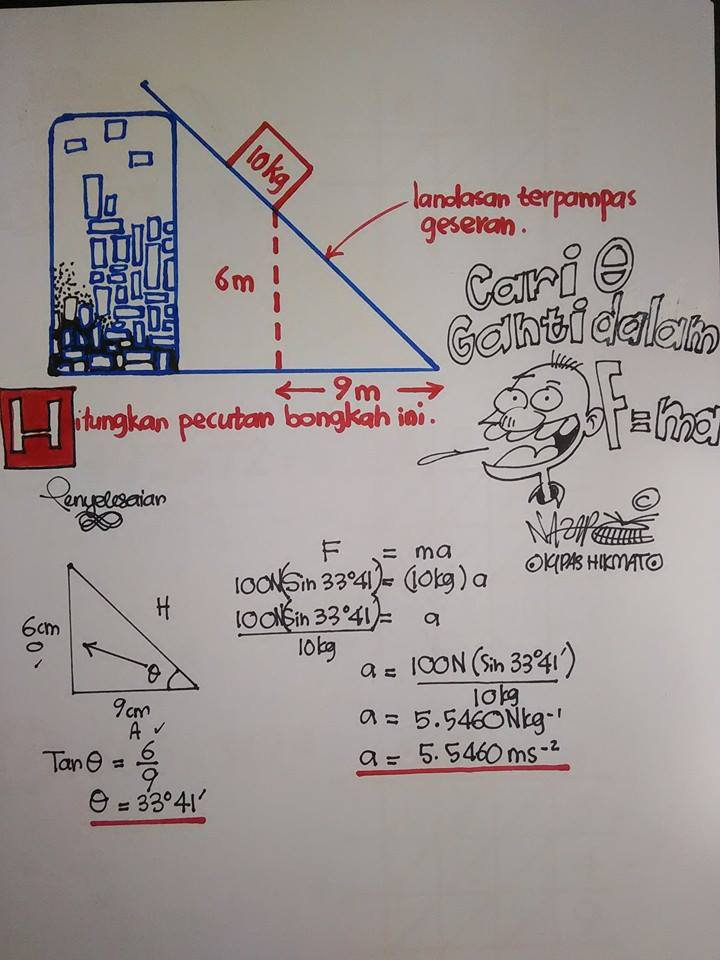 10kg
landasan terpampas
geseran.
6m
Cari θ
Ganti dalam
F = ma
9m
Hitungkan pecutan bongkah ini.
Penyelesaian
©
KIPAS HIKMAT
F = ma
100N(Sin 33°41') = (10kg) a
100N(Sin 33°41') = a
10kg
a = 100N (Sin 33°41')
10kg
a = 5.5460Nkg⁻¹
a = 5.5460 ms⁻²
6cm
O
✓
H
θ
9cm
A ✓
Tan θ = 6
9
θ = 33°41'